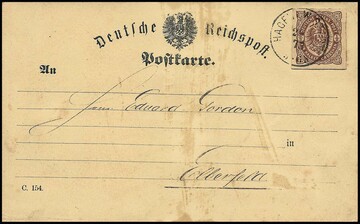 Deutsche Reichspost.
Postkarte.
HAGEN
An
Herrn Eduard Gordon
in
Elberfeld
C. 154.